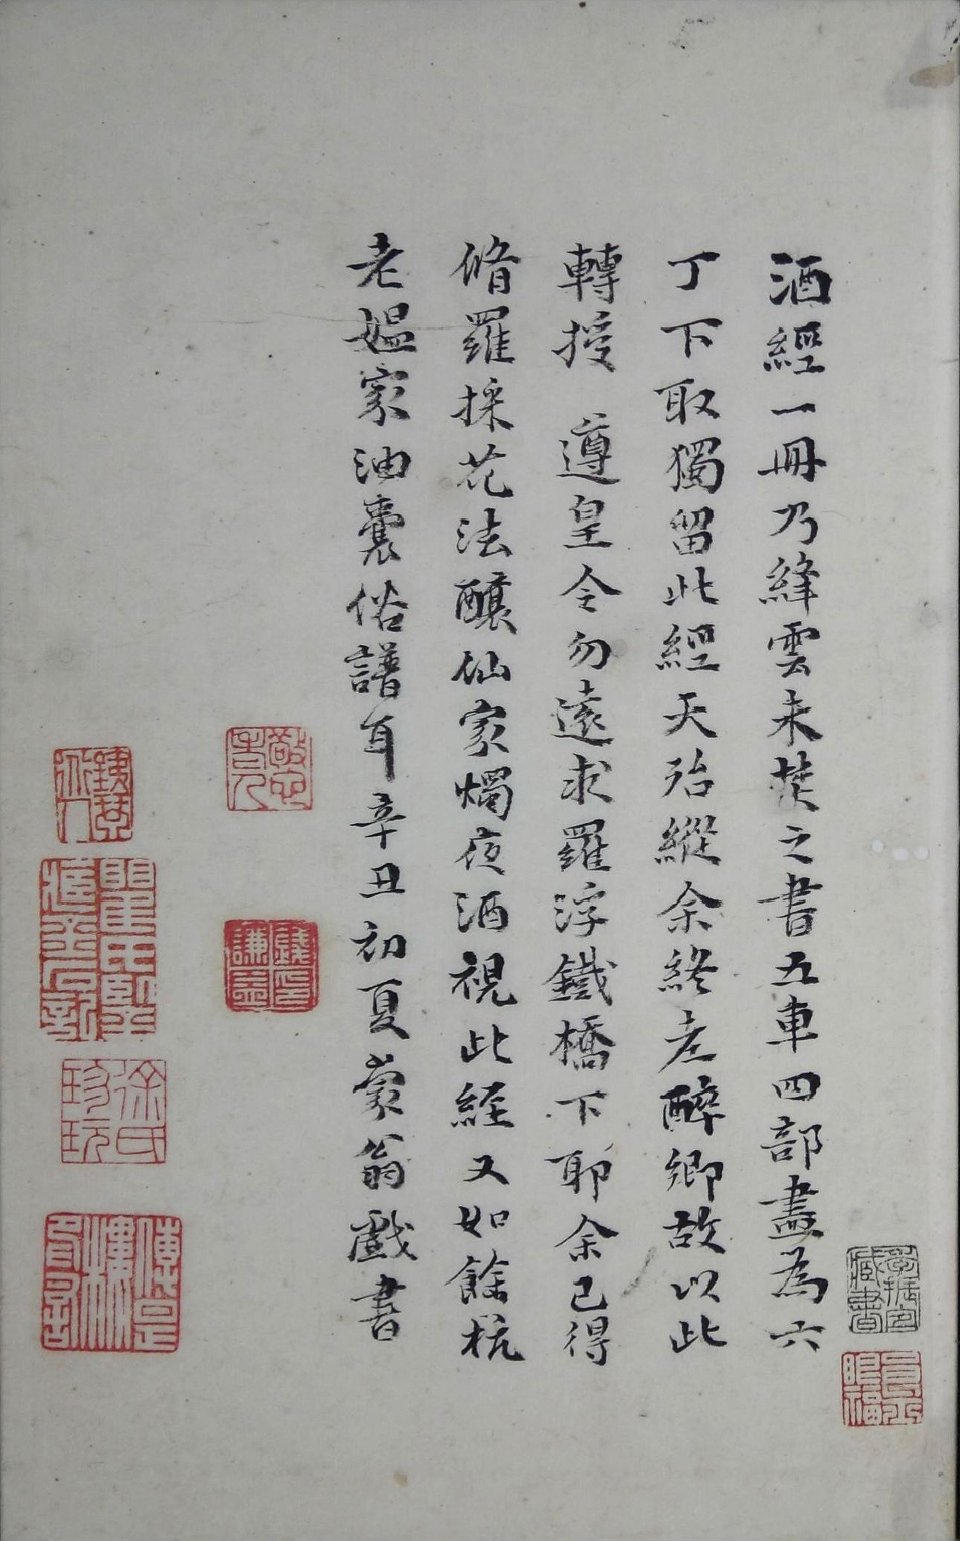 酒經一冊乃絳雲未焚之書五車四部盡為六
丁下取獨留此經天殆縱余終老醉鄉故以此
轉授 遵皇令勿遠求羅浮鐵橋下耶余已得
脩羅採花法釀仙家燭夜酒視此經又如餘杭
老媼家油囊俗譜耳辛丑初夏蒙翁戲書
錢謙益印
徐氏珍玩